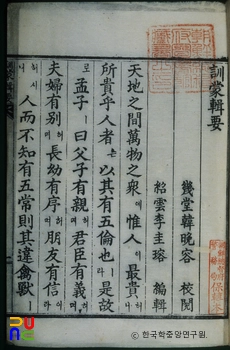 訓蒙輯要
幾堂 韓晩容 校閱
紹雲 李圭瑢 編輯
天地之間萬物之衆에惟人이最貴허니
所貴乎人者는以其有五倫也라是故
로孟子ㅣ曰父子有親허며君臣有義허며
夫婦有別허며長幼有序허며朋友有信이라
허시니人而不知有五常則其違禽獸ㅣ
ⓒ 한국학중앙연구원